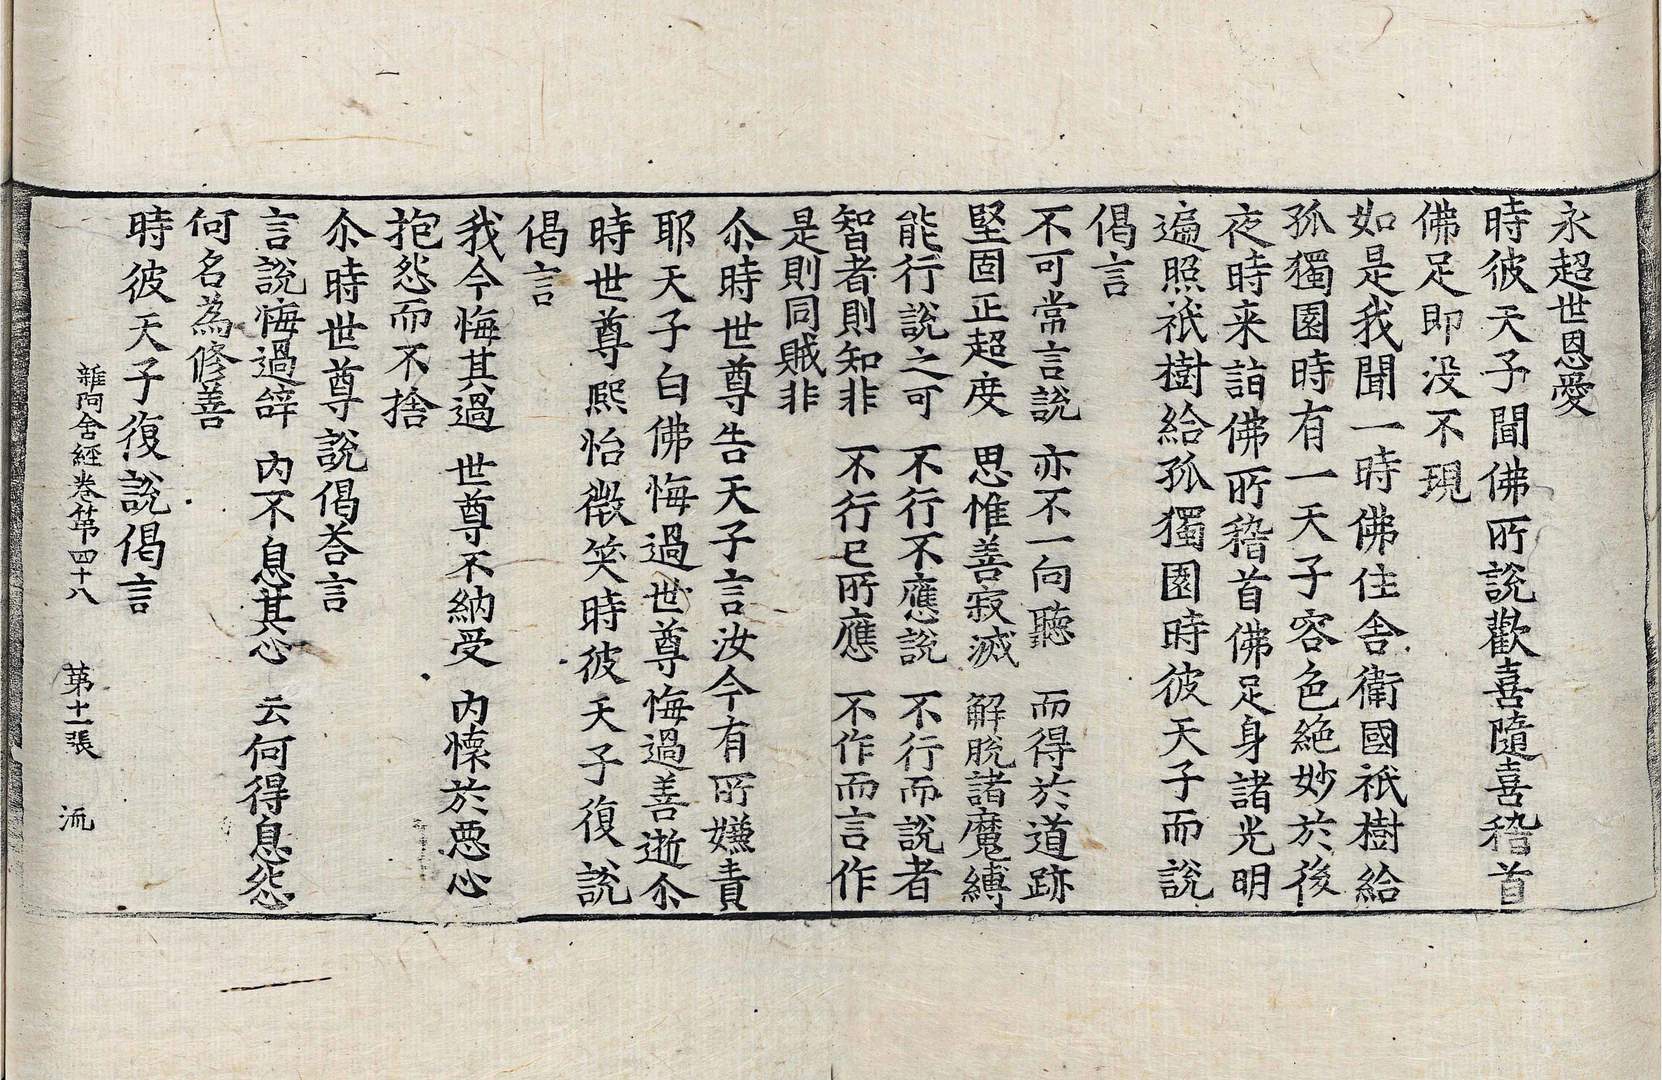 永超世恩愛
時彼天子聞佛所說歡喜隨喜稽首
佛足即沒不現
如是我聞一時佛住舍衛國祇樹給
孤獨園時有一天子容色絕妙於後
夜時来詣佛所稽首佛足身諸光明
遍照祇樹給孤獨園時彼天子而說
偈言
不可常言說 亦不一向聽 而得於道跡
堅固正超度 思惟善寂滅 解脫諸魔縛
能行說之可 不行不應說 不行而說者
智者則知非 不行已所應 不作而言作
是則同賊非
尒時世尊告天子言汝今有所嫌責
耶天子白佛悔過世尊悔過善逝尒
時世尊熙怡微笑時彼天子復說
偈言
我今悔其過 世尊不納受 內懷於惡心
抱怨而不捨
尒時世尊說偈荅言
言說悔過辞 內不息其心 云何得息怨
何名為修善
時彼天子復說偈言
雜阿含經卷第四十八 第十一張 流